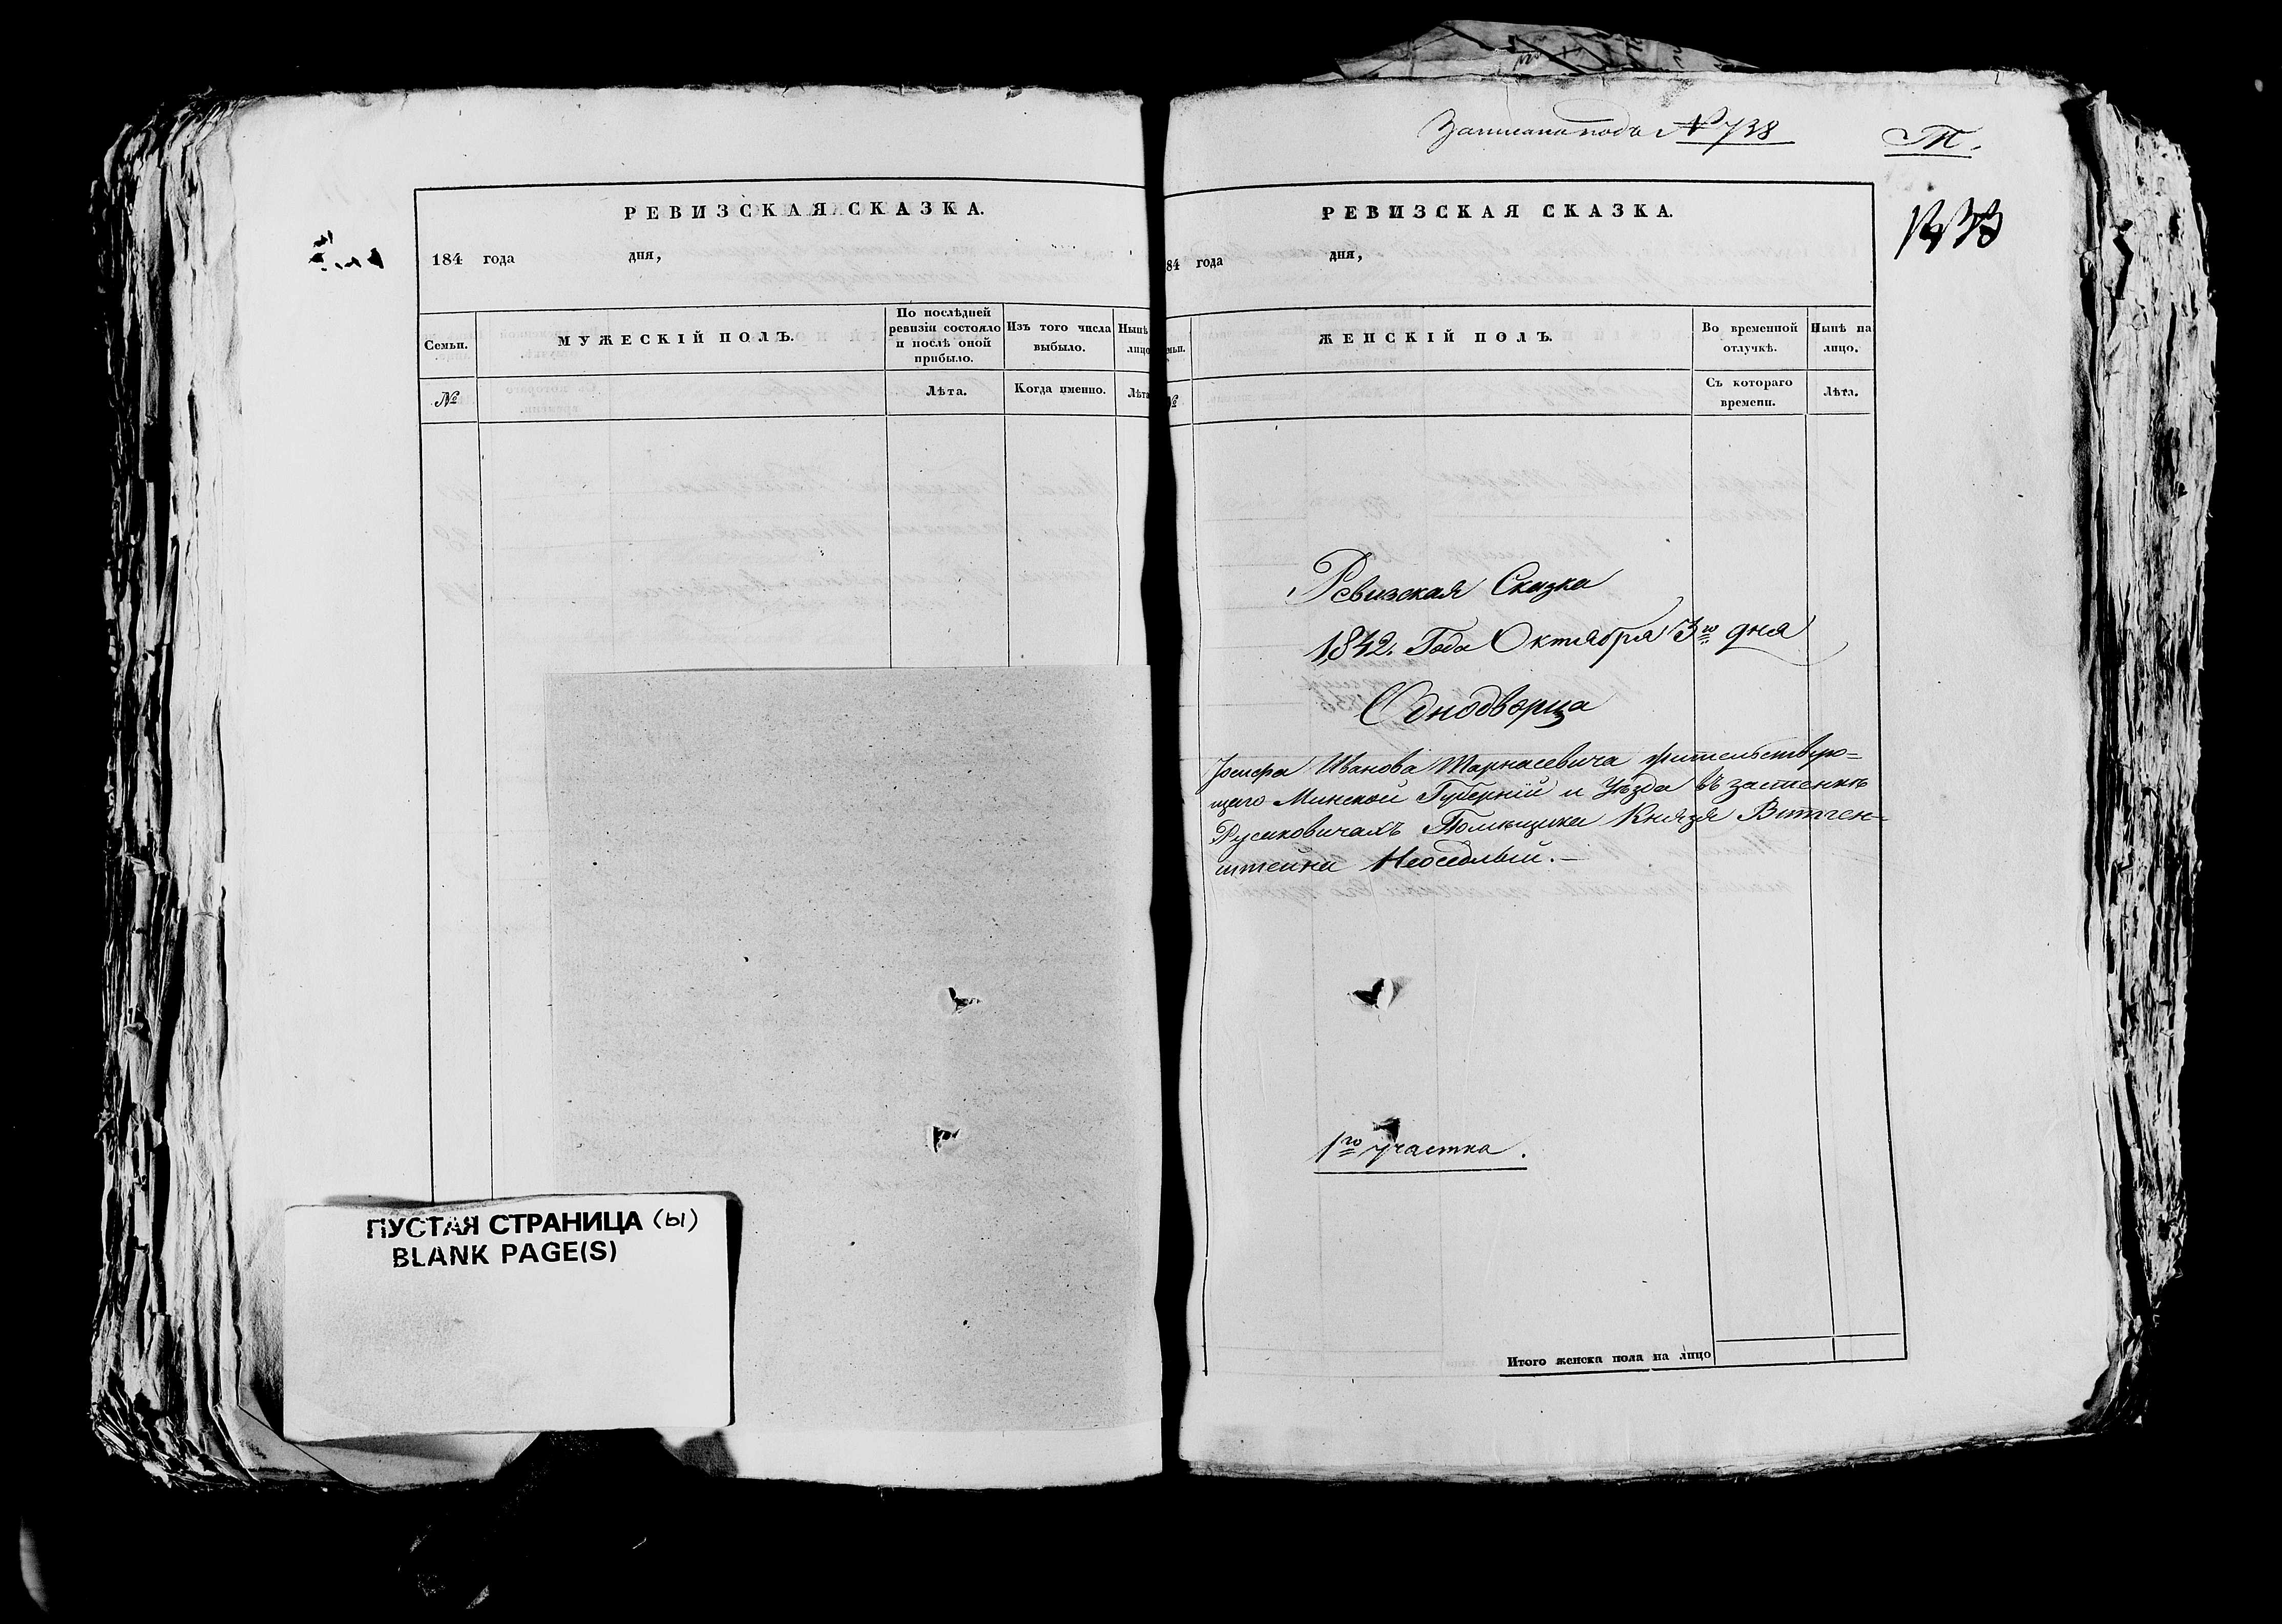 РЕВИЗСКАЯ СКАЗКА.
184 года дня,
Семьи.
МУЖЕСКІЙ ПОЛЪ.
По послѣдней ревизіи состояло и послѣ оной прибыло.
Изъ того числа выбыло.
Нынѣ
лицо
№
Лѣта.
Когда именно.
Лѣта
ПУСТАЯ СТРАНИЦА (ы)
BLANK PAGE(S)
Записана подъ № 738
Т.
РЕВИЗСКАЯ СКАЗКА.
84 года дня,
ЖЕНСКІЙ ПОЛЪ.
Во временной отлучкѣ.
Нынѣ на лицо.
№
Съ котораго времени.
Лѣта.
Ревизская Сказка
1842. Года Октября 3го дня
Однодворца
Іосифа Иванова Тарнасевича жительствую=
щаго Минской Губерніи и Уѣзда въ застенкѣ
Русиковичахъ Помѣщика Князя Витген=
штейна Неоседлый.—
1го участка.
Итого женска пола на лицо